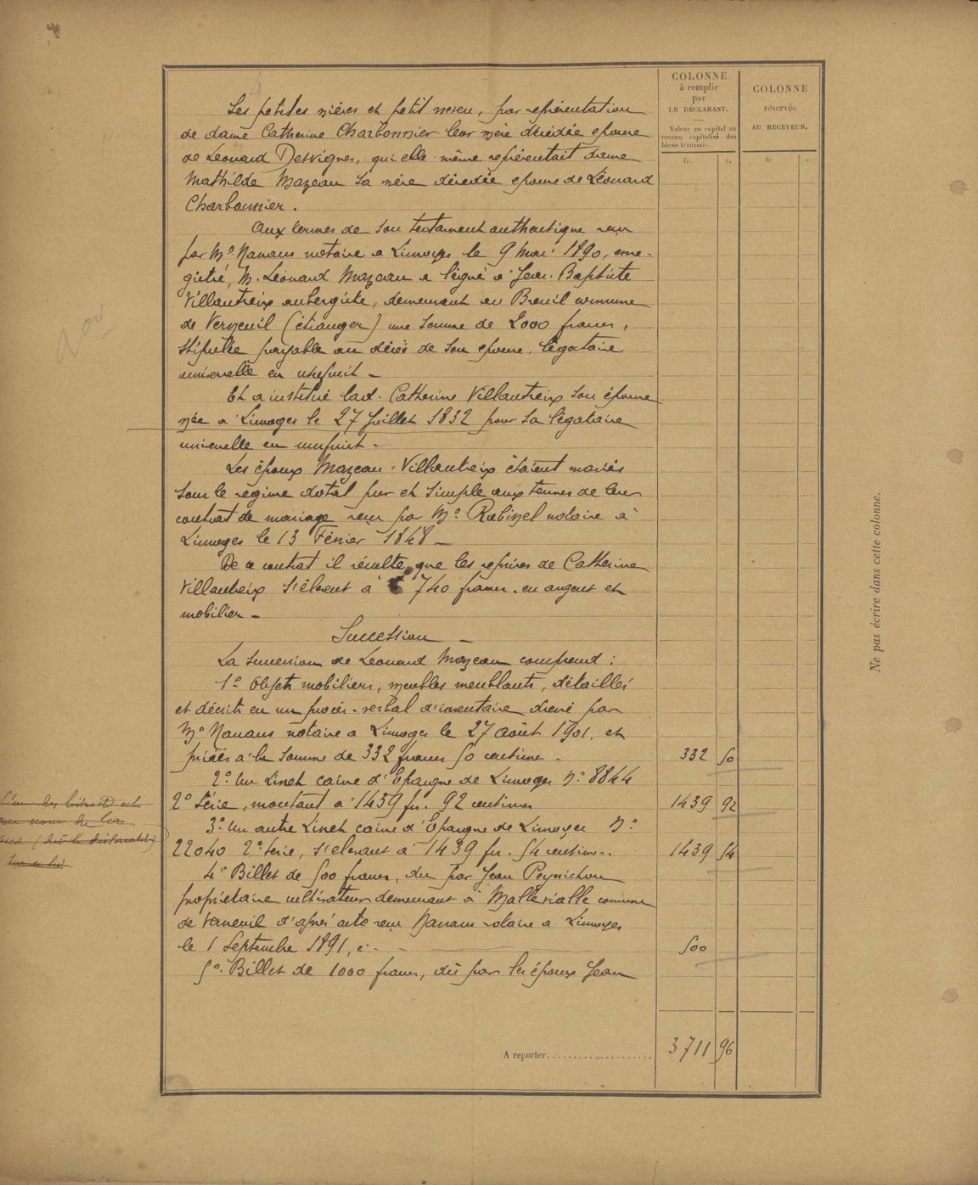 COLONNE
à remplir
par
LE DÉCLARANT.
Valeur en capital ou
revenu capitalisé des
biens transmis.
fr. c.
COLONNE
réservée
AU RECEVEUR.
fr. c.
Les petites nièces et petit neveu, par représentation
de dame Catherine Charbonnier leur mère décédée épouse
de Léonard Desvignes, qui elle-même représentait dame
Mathilde Mazeau sa mère décédée épouse de Léonard
Charbonnier.
Aux termes de son testament authentique reçu
par Me Nanans notaire à Limoges le 9 Mai 1890, enre-
gistré, M. Léonard Mazeau a légué à Jean-Baptiste
Villautreix aubergiste, demeurant au Breuil commune
de Verneuil (étranger) une somme de 2000 francs,
stipulée payable au décès de son épouse, légataire
universelle en usufruit -
Et a institué lad. Catherine Villautreix son épouse
née à Limoges le 27 Juillet 1832 pour sa légataire
universelle en usufruit -
Les époux Mazeau-Villautreix étaient mariés
sous le régime dotal pur et simple aux termes de leur
contrat de mariage reçu par Me notaire à
Limoges le 13 Février 1848 -
De ce contrat il résulte que les reprises de Catherine
Villautreix s'élèvent à 740 francs en argent et
mobilier -
Succession -
La succession de Léonard Mazeau comprend :
1° Objets mobiliers, meubles meublants, détaillés
et décrits en un procès-verbal d'inventaire dressé par
Me Nanans notaire à Limoges le 27 août 1901, et
prisés à la somme de 332 francs 50 centimes - 332 50
2° Un Livret caisse d'Epargne de Limoges N° 8844
2° série, montant à 1439 fr. 92 centimes 1439 92
3° Un autre Livret caisse d'Epargne de Limoges N°
22040 2° série, s'élevant à 1439 fr. 54 centimes. 1439 54
4° Billet de 500 francs, dû par Jean Peynichou
propriétaire cultivateur demeurant à Mallevialle commune
de Verneuil d'après acte reçu Nanans notaire à Limoges
le 1 Septembre 1891, ci - 500
5° Billet de 1000 francs, dû par les époux Jean
A reporter 3711 96
L'un des livrets est
au nom de
Ne pas écrire dans cette colonne.